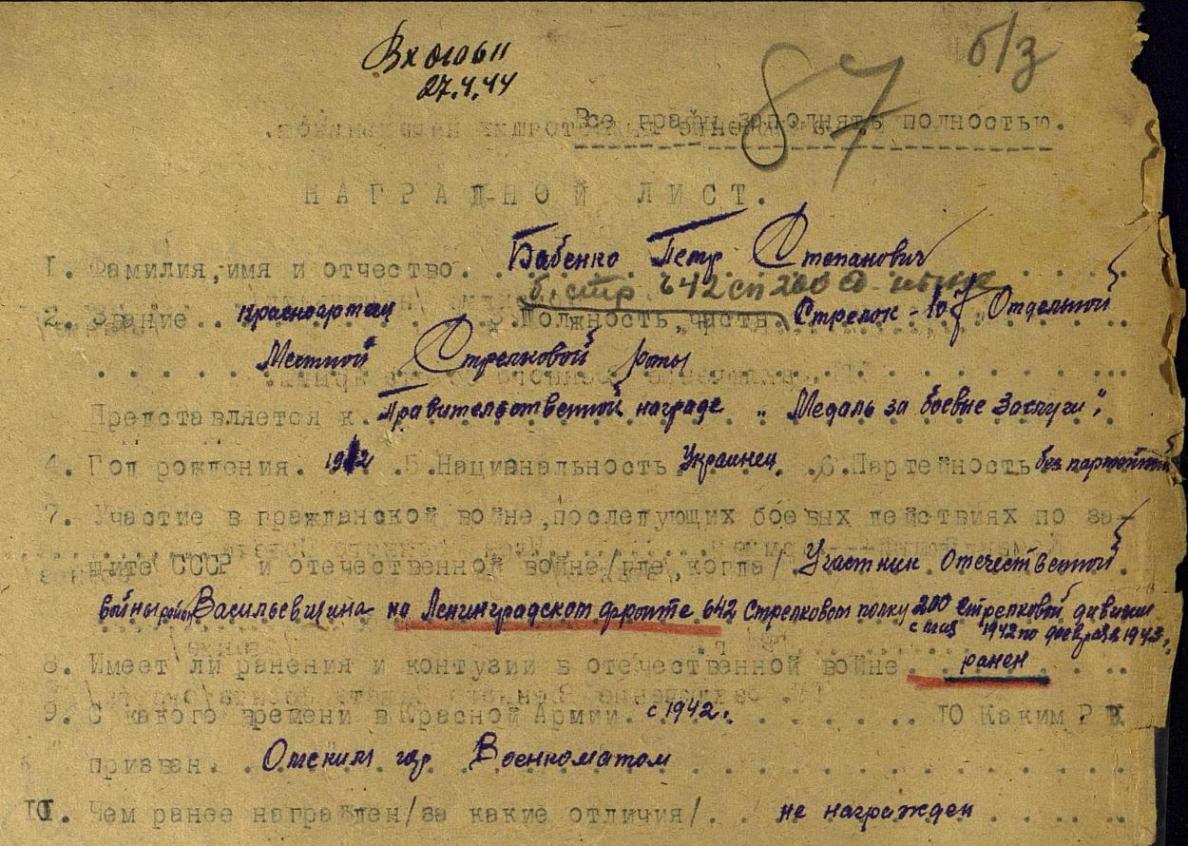 Вх 01061
27.4.44
б/з
87
Все графы заполнять полностью.
НАГРАДНОЙ ЛИСТ.
1. Фамилия, имя и отчество. Бабенко Петр Степанович
б. стр. 642 сп 200 сд
2. Звание.. Красноармеец 3. Должность, часть. Стрелок - 107 Отдельной
Местной Стрелковой роты
Представляется к. Правительственной награде „Медаль за боевые Заслуги".
4. Год рождения. 1912 .5. Национальность Украинец .6. Партейность без партейный
7. Участие в гражданской войне, последующих боевых действиях по за-
щите СССР и отечественной войне/где, когда/ Участник Отечественной
войны район Васильевщина на Ленинградском фронте 642 Стрелковом полку 200 Стрелковой дивизии
с мая 1942 по февраль 1943 г.
8. Имеет ли ранения и контузии в отечественной войне.. ранен
9. С какого времени в Красной Армии. с 1942. 10 Каким РВК
призван. Омским гор Военкоматом
11. Чем ранее награжден/за какие отличия/.. не награжден